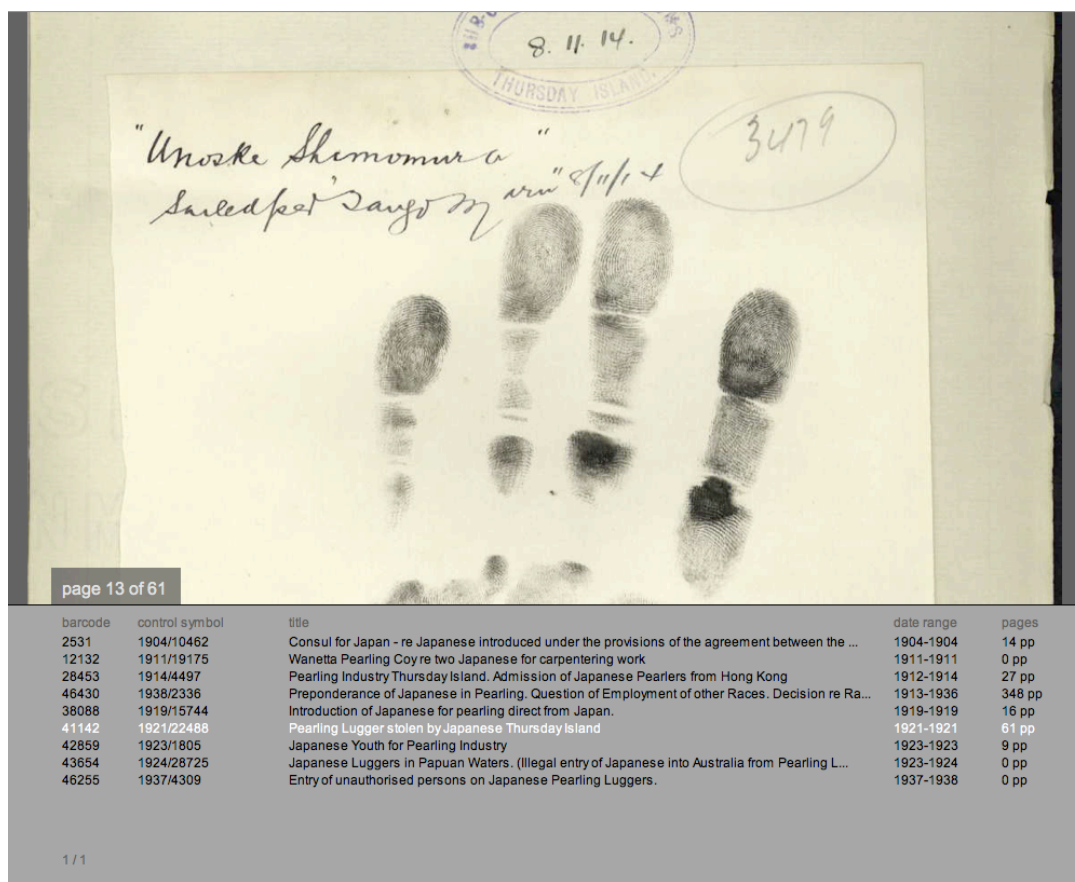 SUB-
8. 11. 14.
THURSDAY ISLAND.
3479
"Unoske Shimomura"
Sailed per "Tango Maru" 8/11/14
page 13 of 61
barcode control symbol title date range pages
2531 1904/10462 Consul for Japan - re Japanese introduced under the provisions of the agreement between the ... 1904-1904 14 pp
12132 1911/19175 Wanetta Pearling Coy re two Japanese for carpentering work 1911-1911 0 pp
28453 1914/4497 Pearling Industry Thursday Island. Admission of Japanese Pearlers from Hong Kong 1912-1914 27 pp
46430 1938/2336 Preponderance of Japanese in Pearling. Question of Employment of other Races. Decision re Ra... 1913-1936 348 pp
38088 1919/15744 Introduction of Japanese for pearling direct from Japan. 1919-1919 16 pp
41142 1921/22488 Pearling Lugger stolen by Japanese Thursday Island 1921-1921 61 pp
42859 1923/1805 Japanese Youth for Pearling Industry 1923-1923 9 pp
43654 1924/28725 Japanese Luggers in Papuan Waters. (Illegal entry of Japanese into Australia from Pearling L... 1923-1924 0 pp
46255 1937/4309 Entry of unauthorised persons on Japanese Pearling Luggers. 1937-1938 0 pp
1 / 1